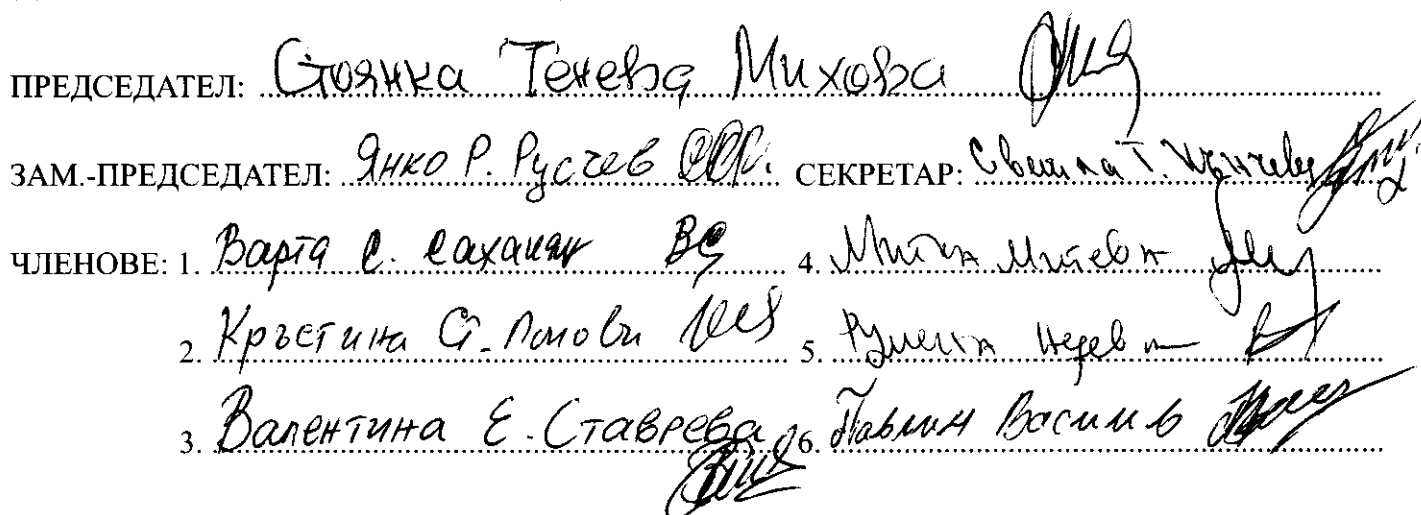 ПРЕДСЕДАТЕЛ: Стоянка Тенева Михова
ЗАМ.-ПРЕДСЕДАТЕЛ: Янко Р. Русчев СЕКРЕТАР: Светла Т. Кънчева
ЧЛЕНОВЕ: 1. Варта С. Саханян 4. Митка Митева
2. Кръстина Ст. Попова 5. Румяна Недева
3. Валентина Е. Ставрева 6. Павлин Василев